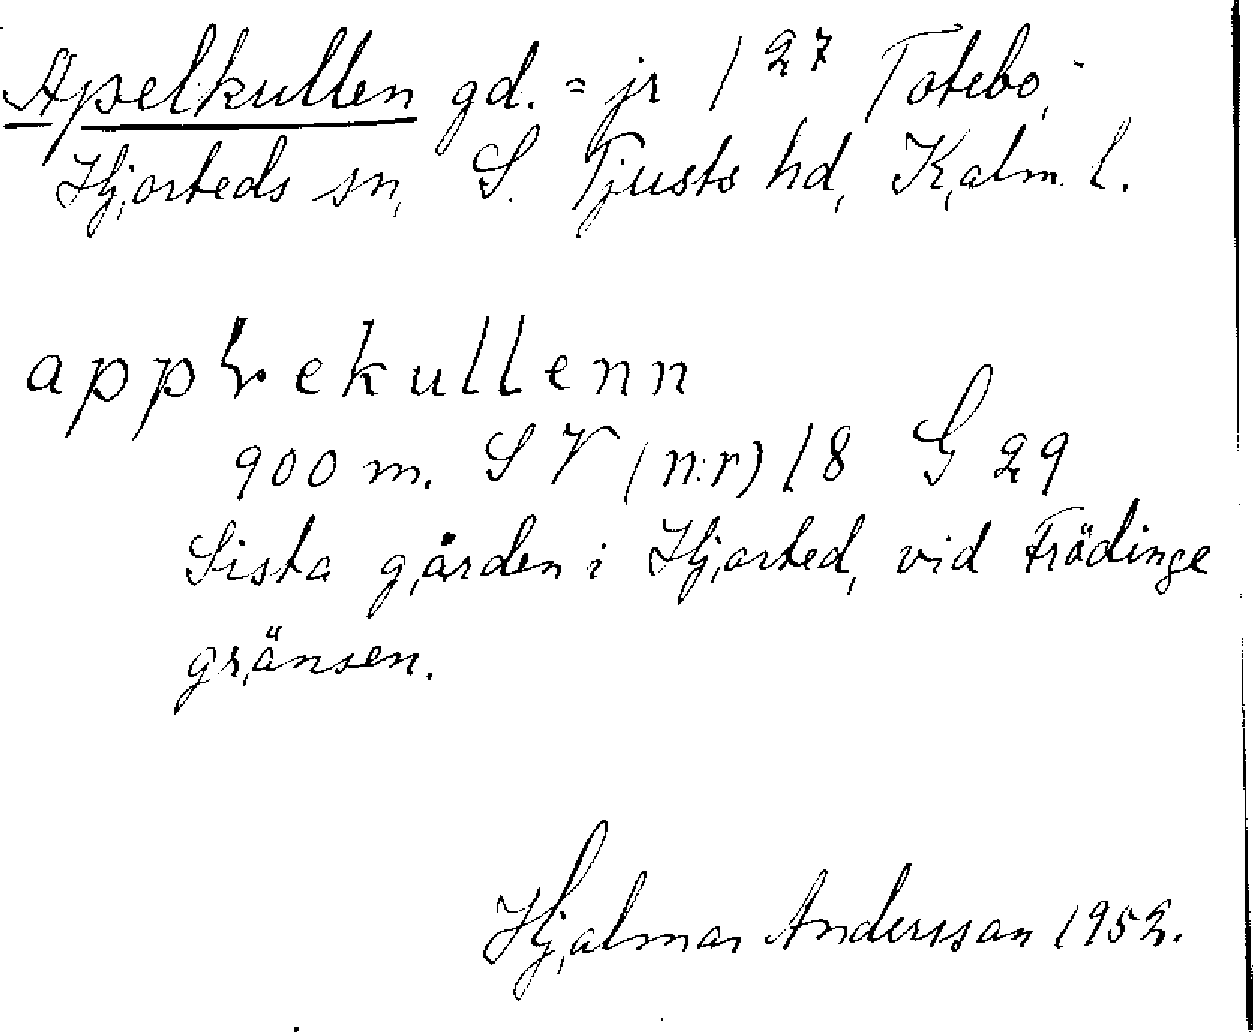 Apelkullen gd. = jr 1²⁷ Totebo,
Hjorteds sn, S. Tjusts hd, Kalm. l.
app ekullenn
900 m. SV (n:r) 18 G 29
Sista gården i Hjorted, vid Frödinge
gränsen.
Hjalmar Andersson 1952.